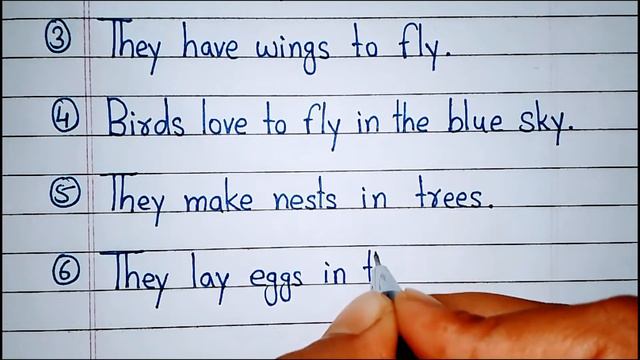 ③ They have wings to fly.
④ Birds love to fly in the blue sky.
⑤ They make nests in trees.
⑥ They lay eggs in t